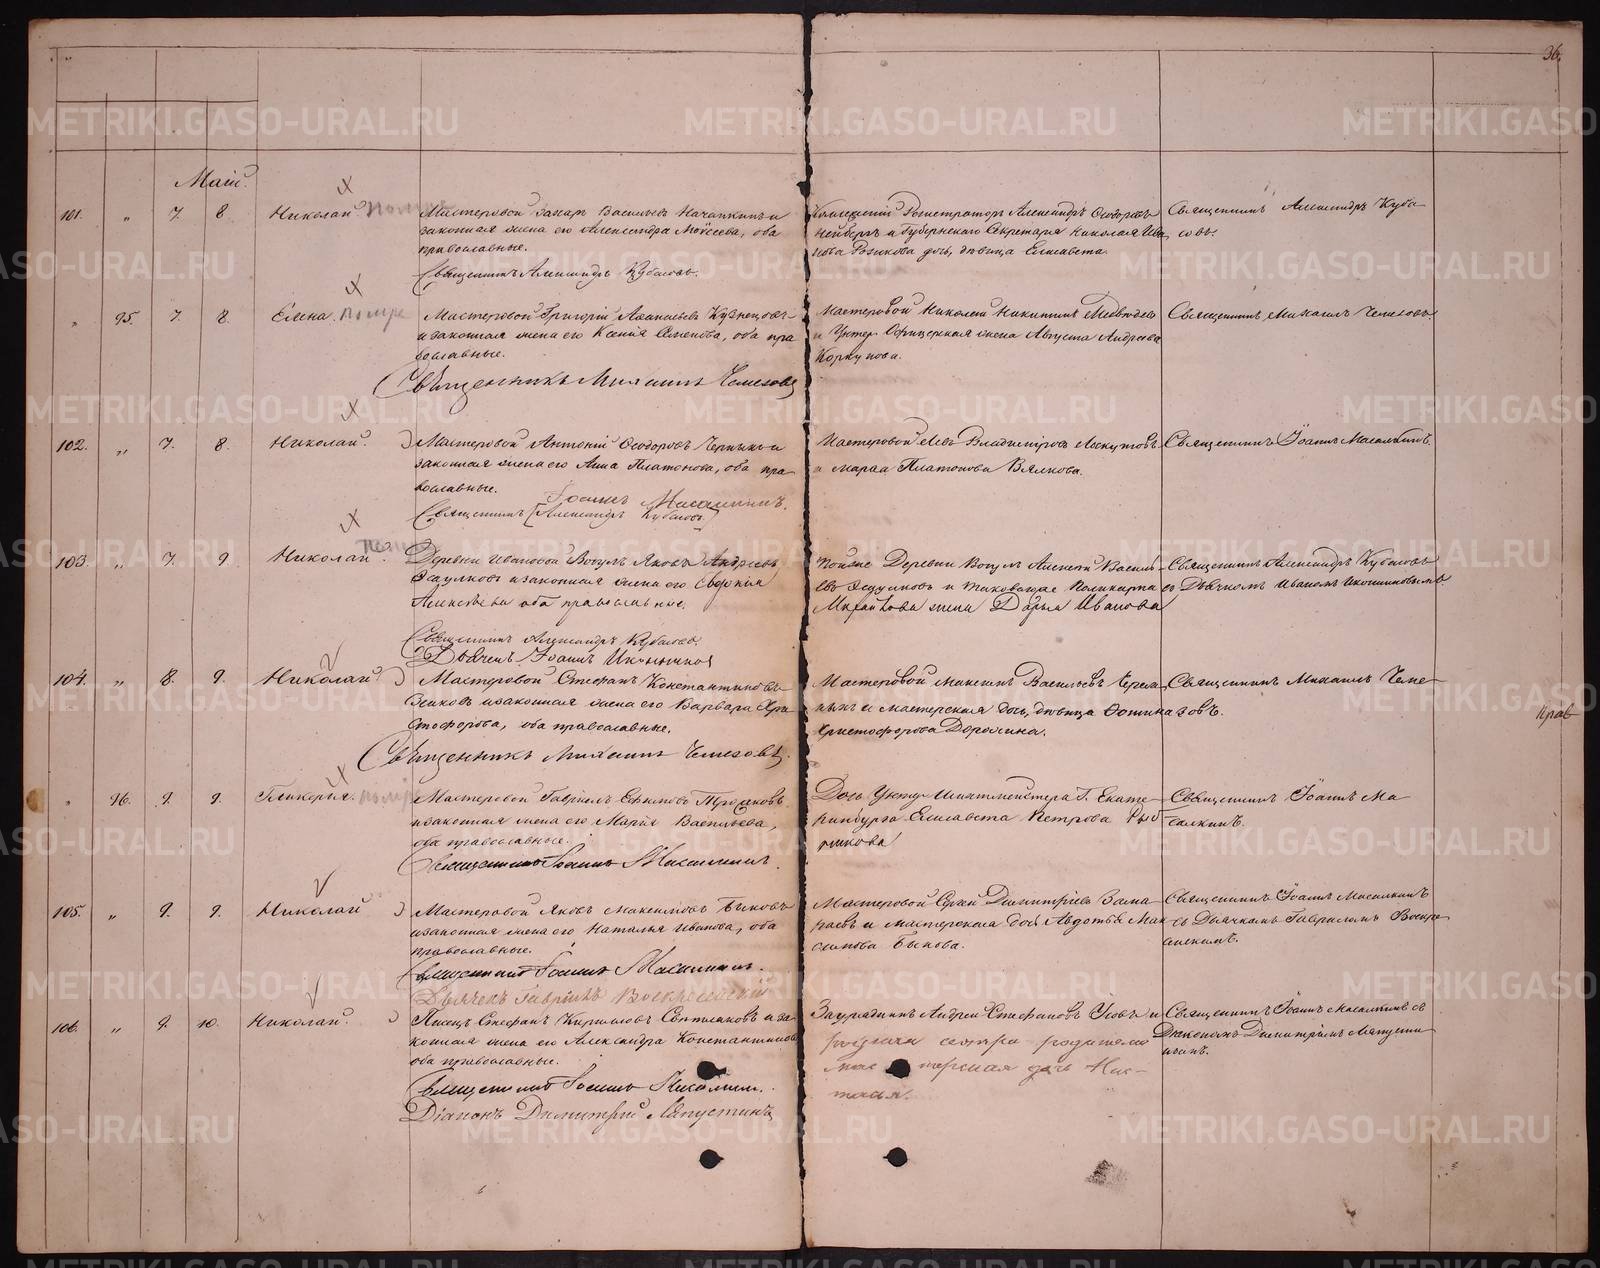 36.
Май.
101. „ 7. 8. Николай. помре
Мастеровой Захаръ Васильевъ и
законная жена его Александра Моѵсеева, оба
православные.
Священникъ Александръ Кубасовъ.
Коллежскій Регистраторъ Александръ Ѳеодоровъ
и Губернскаго Секретаря Николая Ива
нова дочь, дѣвица Елисавета.
Священникъ Александръ Куба
совъ.
„ 95. 7. 8. Елена. помре
Мастеровой Григорій Аѳанасьевъ Кузнецовъ
и законная жена его Ксенія Семенова, оба пра
вославные.
Священникъ Михаилъ Чемезовъ
Мастеровой Николай Никитинъ
и Унтеръ Офицерская жена Августа Андреева
Коркунова.
Священникъ Михаилъ Чемезовъ.
102. „ 7. 8. Николай.
Мастеровой Антоній Ѳеодоровъ Черныхъ и
законная жена его Анна Платонова, оба пра
вославные.
Іоаннъ Масалкинъ.
Священникъ [Александръ Кубасовъ]
Мастеровой Левъ Владиміровъ Лоскутовъ
и Марѳа Платонова Вялкова.
Священникъ Іоаннъ Масалкинъ.
103. „ 7. 9. Николай. помре
Деревни Ивановой Вогулъ Яковъ Андреевъ
и законная жена его Евдокія
Алексѣева оба православные.
Священникъ Александръ Кубасовъ.
Дьячекъ Іоаннъ Иконниковъ
Тойже Деревни Вогулъ Алексѣй Василь
евъ и таковагоже Поликарпа
Михайлова жена Дарья Иванова
Священникъ Александръ Кубасовъ
съ Дьячкомъ Иваномъ Иконниковымъ
104. „ 8. 9. Николай.
Мастеровой Стефанъ Константиновъ
и законная жена его Варвара Хри
стофорова, оба православные.
Священникъ Михаилъ Чемезовъ.
Мастеровой Максимъ Васильевъ Череп
и мастерская дочь, дѣвица Ѳотина
Христофорова Доронина.
Священникъ Михаилъ Чеме
зовъ.
Прав
„ 96. 9. 9. Гликерія. помре
Мастеровой Гавріилъ Ефимовъ Трошковъ
и законная жена его Марія Васильева,
оба православные.
Священникъ Іоаннъ Масалкинъ.
Дочь Унтеръ Шихтмейстера Г. Екате
ринбурга Елисавета Петрова Рыб
никова
Священникъ Іоаннъ Ма
салкинъ.
105. „ 9. 9. Николай
Мастеровой Яковъ Максимовъ Быковъ
и законная жена его Наталья Иванова, оба
православные.
Священникъ Іоаннъ Масалкинъ.
Дьячекъ Гавріилъ Воскресенскій
Мастеровой Сергей Димитріевъ Зама
раевъ и мастерская дочь Авдотья Мак
симова Быкова.
Священникъ Іоаннъ Масалкинъ
съ Дьячкомъ Гавріиломъ Воскре
сенскимъ.
106. „ 9. 10. Николай.
Писецъ Стефанъ Кириловъ и за
конная жена его Александра Константинова
оба православные.
Священникъ Іоаннъ Масалкинъ.
Діаконъ Димитрій Ляпустинъ
Заурядникъ Андрей Стефановъ Усовъ и
родная сестра родителю
мастерская дочь Нас-
тасья.
Священникъ Іоаннъ Масалкинъ съ
Діакономъ Димитріемъ Ляпусти
нымъ.
METRIKI.GASO-URAL.RU